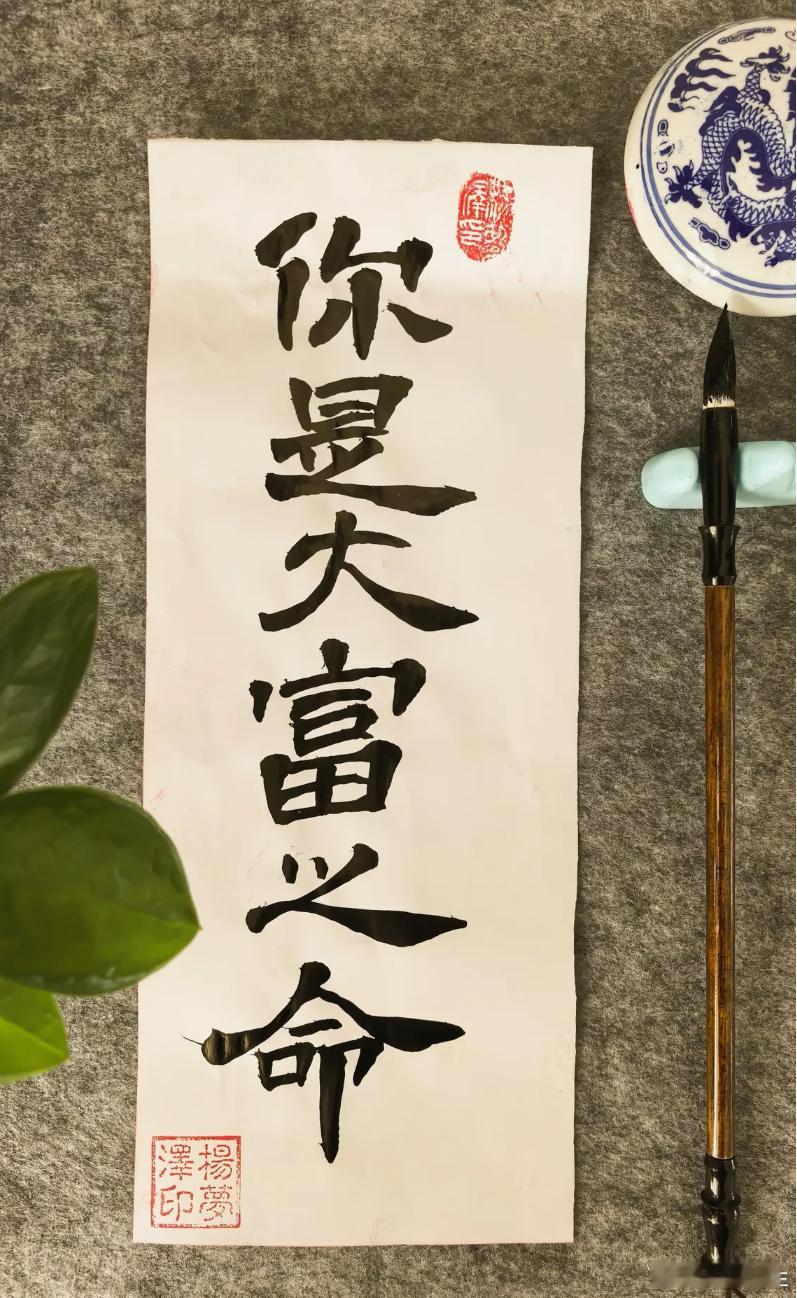 你是大富之命
楊夢澤印